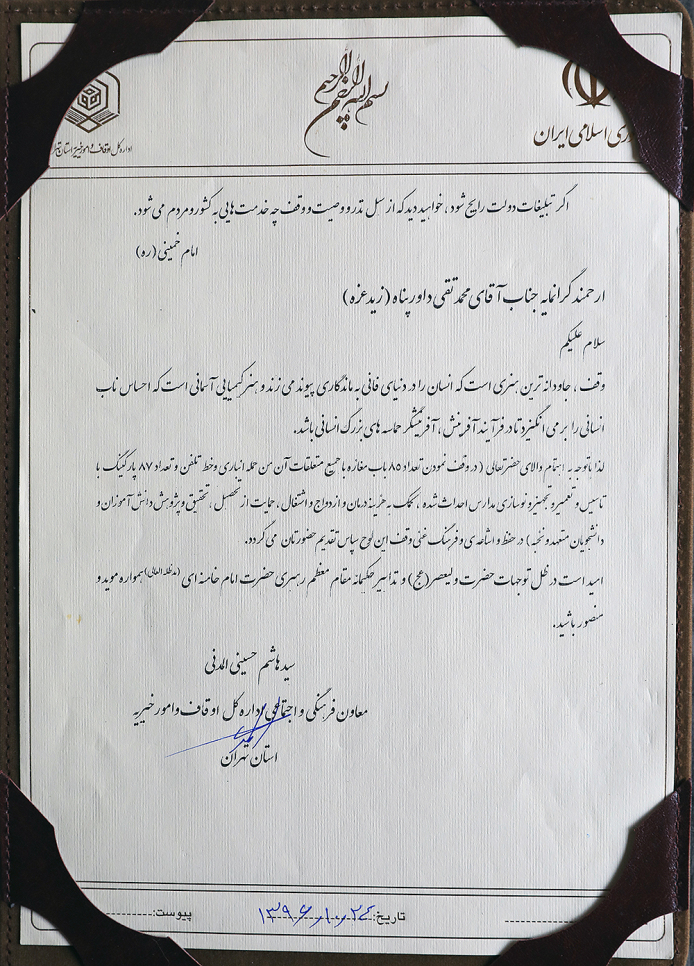 بسم الله الرحمن الرحیم
ری اسلامی ایران
اداره کل اوقاف و امور خیریه استان تهر
اگر تبلیغات دولت رایج شود ، خواهید دید که از سبل نذر و وصیت و وقف چه خدمت هایی به کشور و مردم می شود.
امام خمینی (ره)
ارجمند گرانمایه جناب آقای محمد تقی داورپناه (زید عزه)
سلام علیکم
وقف ، جاودانه ترین هنری است که انسان را در دنیای فانی به ماندگاری پیوند می زند و هنر کیمیایی آسمانی است که احساس ناب
انسانی را بر می انگیزد تا در فرآیند آفرینش ، آفرینشگر حماسه های بزرگ انسانی باشد.
لذا با توجه به اهتمام والای حضرتعالی ( در وقف نمودن تعداد ۸۵ باب مغازه با جمیع متعلقات آن من جمله انباری و خط تلفن و تعداد ۸۷ پارکینگ با
تاسیس و تعمیر و تجهیز و نوسازی مدارس احداث شده ، کمک به هزینه درمان و ازدواج و اشتغال ، حمایت از تحصیل ، تحقیق و پژوهش دانش آموزان و
دانشجویان متعهد و نخبه) در حفظ و اشاعه ی و فرهنگ غنی وقف این لوح سپاس تقدیم حضورتان می گردد.
امید است در ظل توجهات حضرت ولیعصر (عج) و تدابیر حکیمانه مقام معظم رهبری حضرت امام خامنه ای (مدظله العالی) همواره موید و
منصور باشید.
سید هاشم حسینی المدنی
معاون فرهنگی و اجتماعی اداره کل اوقاف و امور خیریه
استان تهران
تاریخ: ۱۳۹۶،۱۰،۲۴
پیوست: